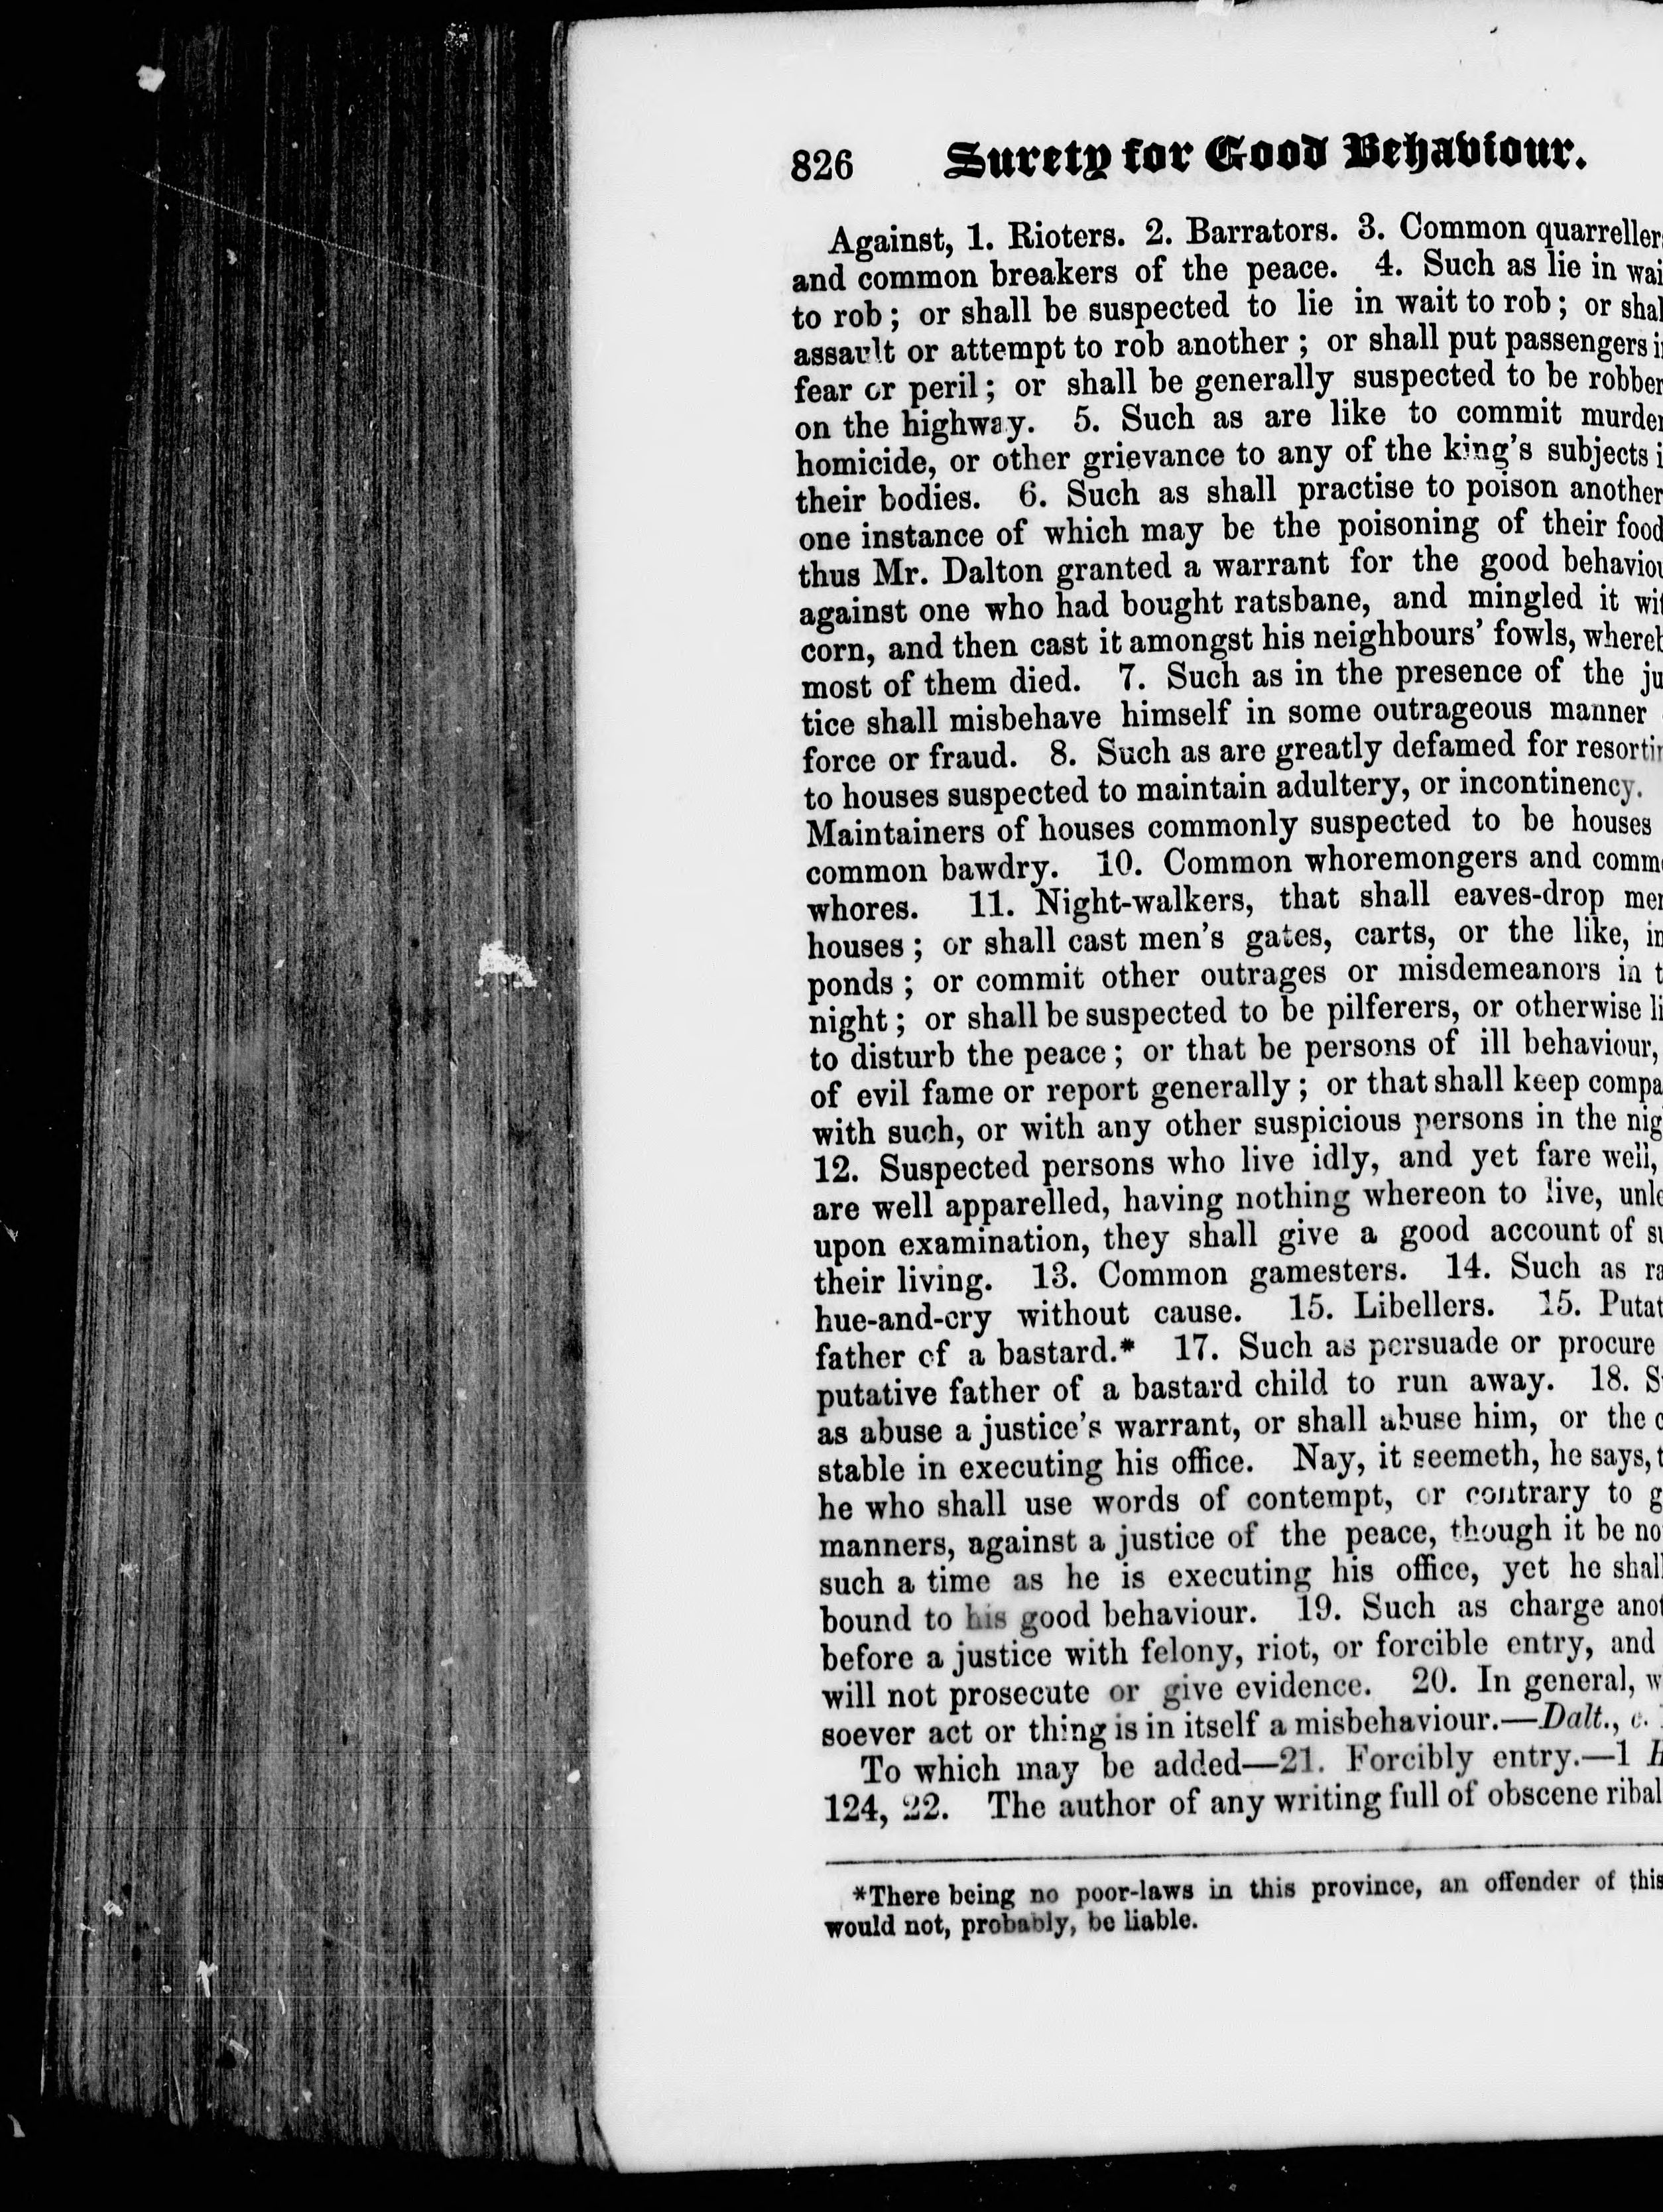 826 Surety for Good Behaviour.
Against, 1. Rioters. 2. Barrators. 3. Common quarreller
and common breakers of the peace. 4. Such as lie in wai
to rob; or shall be suspected to lie in wait to rob; or shal
assault or attempt to rob another; or shall put passengers i
fear or peril; or shall be generally suspected to be robber
on the highway. 5. Such as are like to commit murder
homicide, or other grievance to any of the king's subjects i
their bodies. 6. Such as shall practise to poison another
one instance of which may be the poisoning of their food
thus Mr. Dalton granted a warrant for the good behaviou
against one who had bought ratsbane, and mingled it wit
corn, and then cast it amongst his neighbours' fowls, whereb
most of them died. 7. Such as in the presence of the ju
tice shall misbehave himself in some outrageous manner
force or fraud. 8. Such as are greatly defamed for resortin
to houses suspected to maintain adultery, or incontinency.
Maintainers of houses commonly suspected to be houses
common bawdry. 10. Common whoremongers and comm
whores. 11. Night-walkers, that shall eaves-drop men
houses; or shall cast men's gates, carts, or the like, in
ponds; or commit other outrages or misdemeanors in t
night; or shall be suspected to be pilferers, or otherwise li
to disturb the peace; or that be persons of ill behaviour,
of evil fame or report generally; or that shall keep compa
with such, or with any other suspicious persons in the nig
12. Suspected persons who live idly, and yet fare well,
are well apparelled, having nothing whereon to live, unle
upon examination, they shall give a good account of su
their living. 13. Common gamesters. 14. Such as ra
hue-and-cry without cause. 15. Libellers. 15. Putat
father of a bastard.* 17. Such as persuade or procure
putative father of a bastard child to run away. 18. S
as abuse a justice's warrant, or shall abuse him, or the c
stable in executing his office. Nay, it seemeth, he says, t
he who shall use words of contempt, or contrary to g
manners, against a justice of the peace, though it be no
such a time as he is executing his office, yet he shall
bound to his good behaviour. 19. Such as charge anot
before a justice with felony, riot, or forcible entry, and
will not prosecute or give evidence. 20. In general, w
soever act or thing is in itself a misbehaviour.—Dalt., c.
To which may be added—21. Forcibly entry.—1 H
124, 22. The author of any writing full of obscene ribal
*There being no poor-laws in this province, an offender of this
would not, probably, be liable.